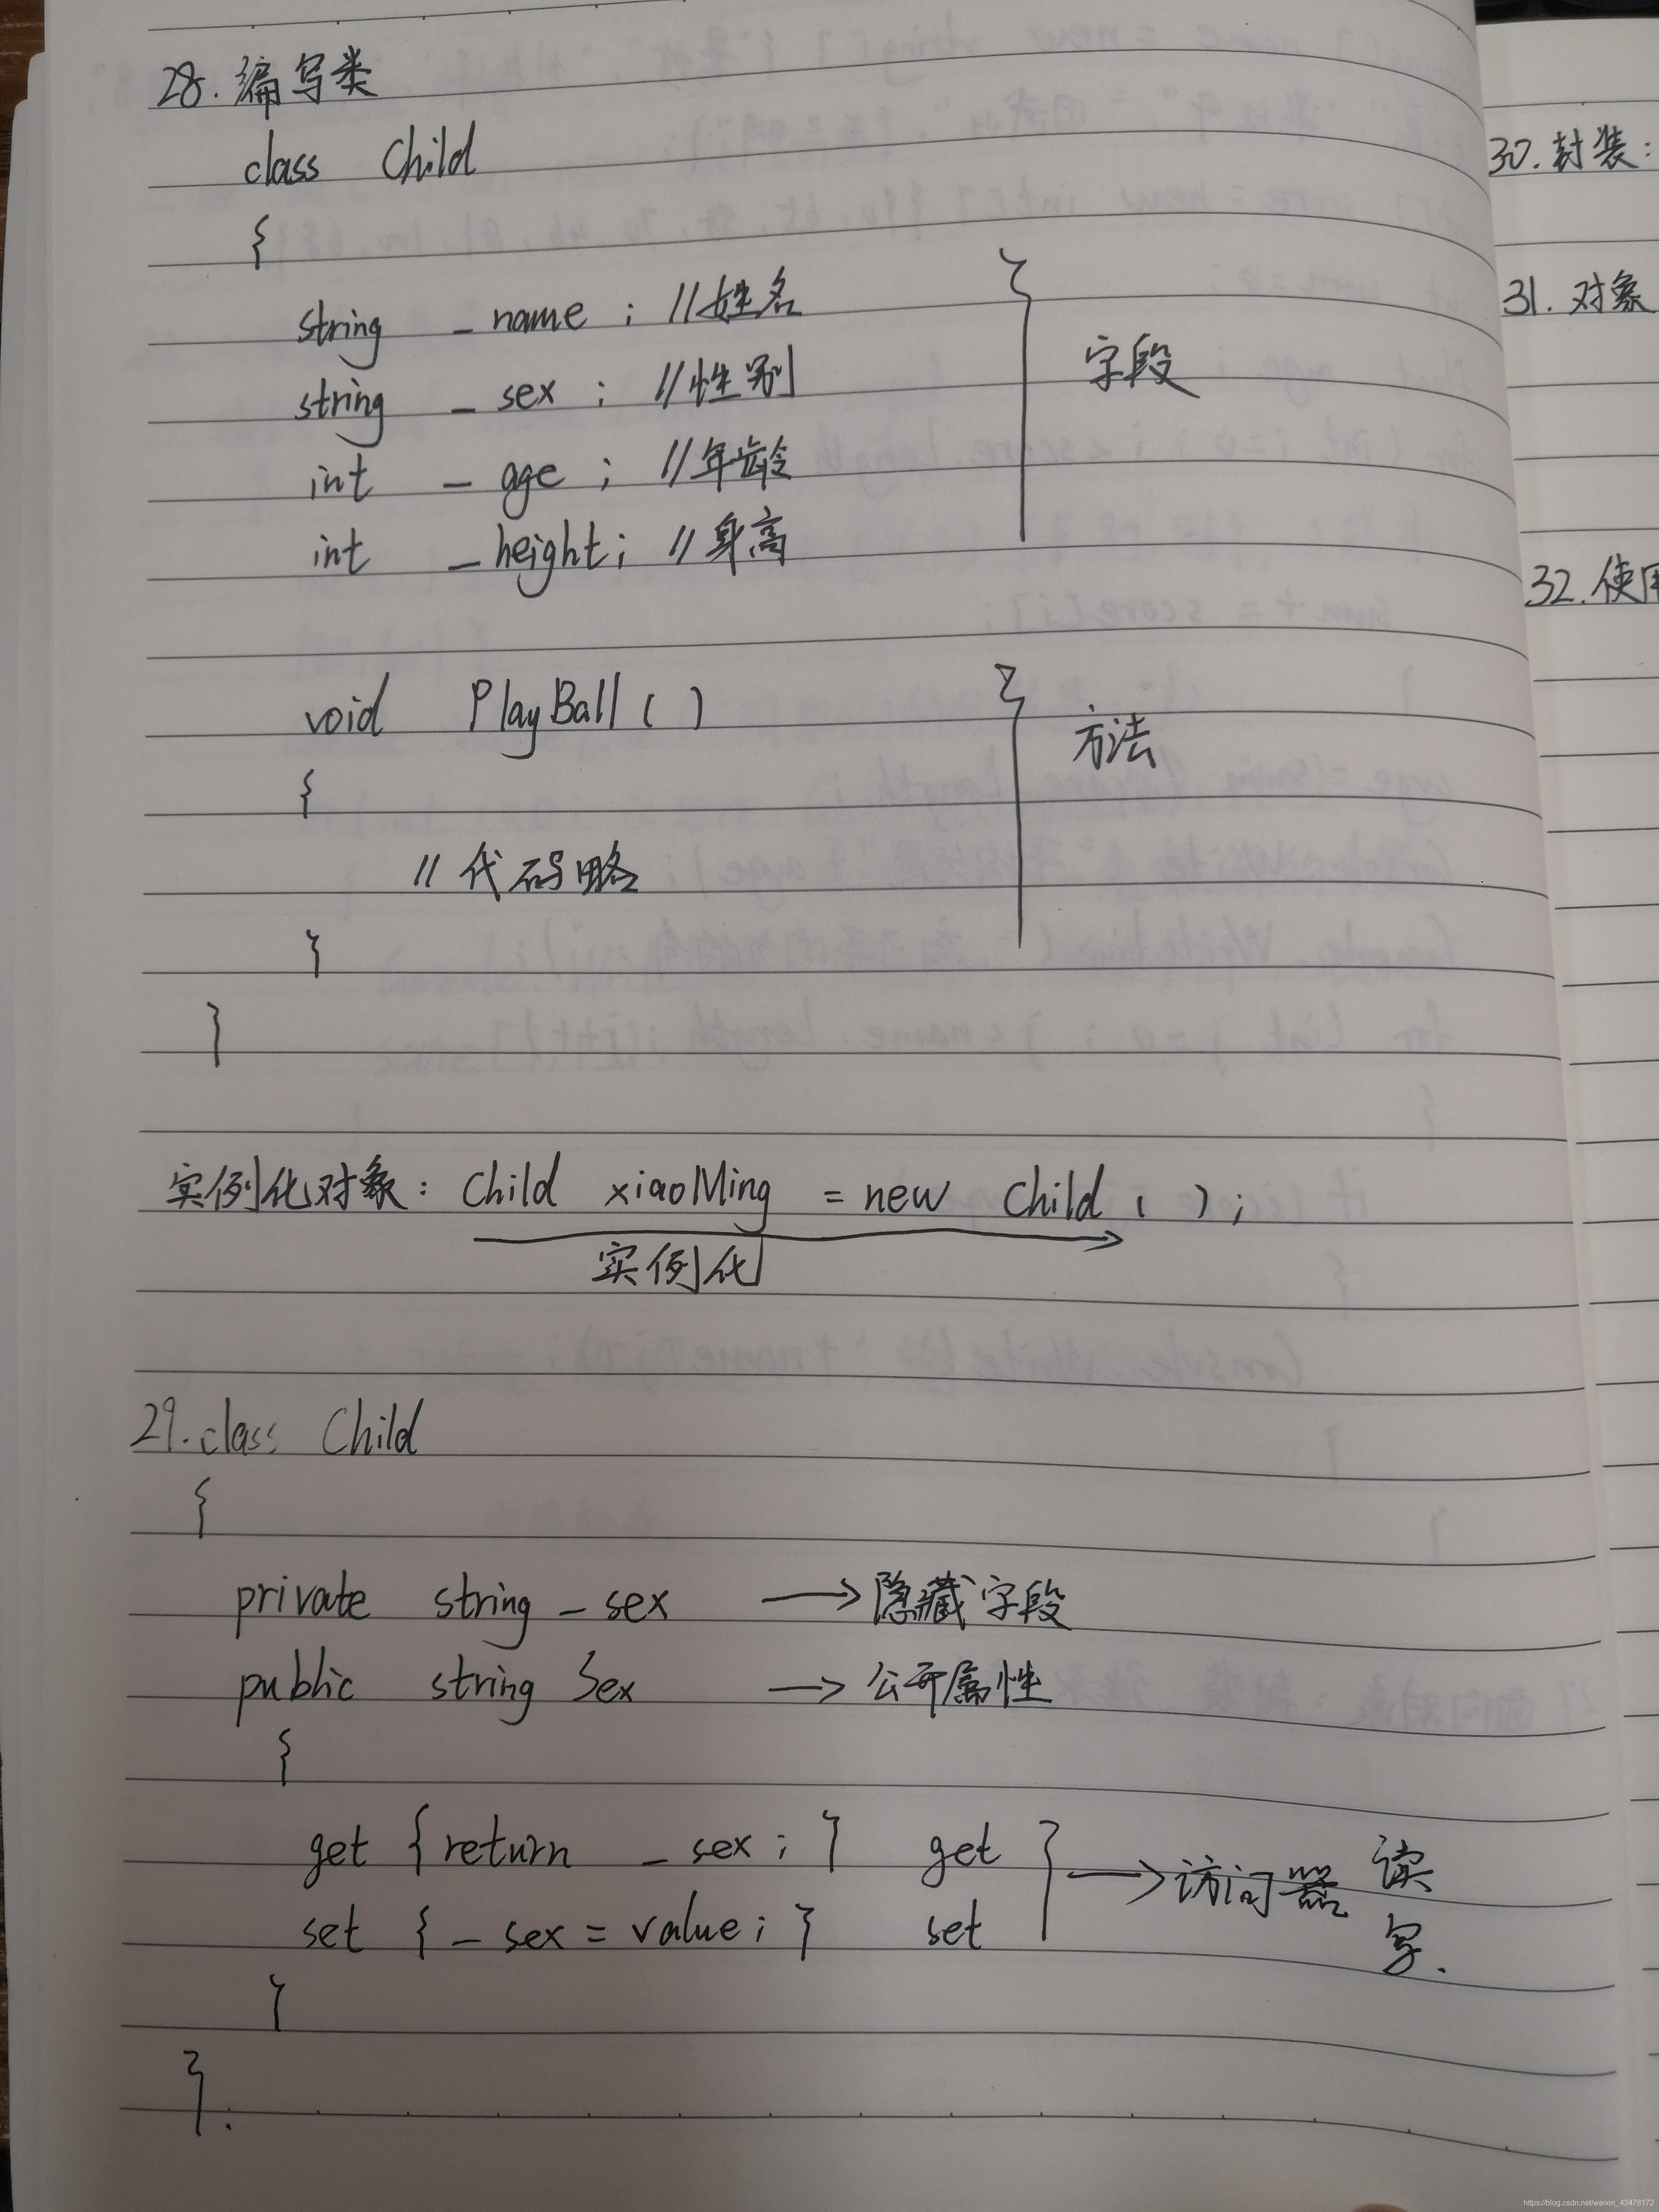 28. 编写类
class Child
{
string _name ; //姓名
string _sex ; //性别
int _age ; //年龄
int _height; //身高
} 字段
void PlayBall ( )
{
// 代码略
}
} 方法
}
实例化对象: Child xiaoMing = new Child ( ) ;
实例化
29. class Child
{
private string _sex → 隐藏字段
public string Sex → 公开属性
{
get {return _sex ; } get
set { _sex = value ; } set
} → 访问器 读
写.
}
}.
30. 封装:
31. 对象
32. 使用
https://blog.csdn.net/weixin_43478172